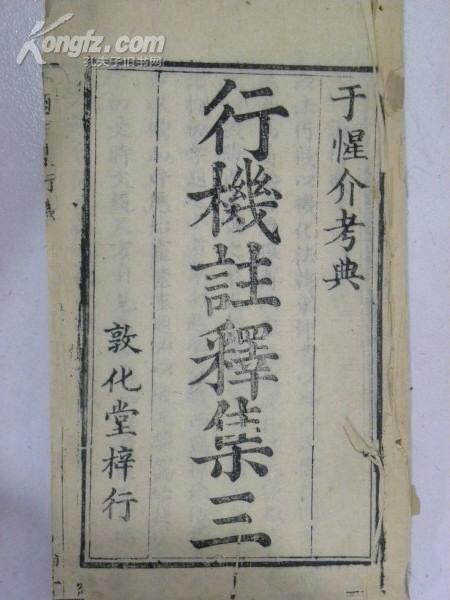 Kongfz.com
孔夫子旧书网
于惺介考典
行機註釋集三
敦化堂梓行